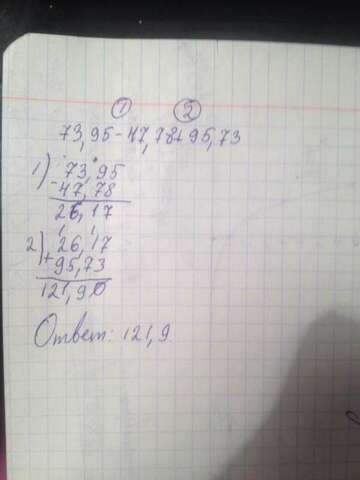 ① ②
73,95-47,78+95,73
1) 73,95
- 47,78
26,17
2) 26,17
+ 95,73
121,90
Ответ: 121,9